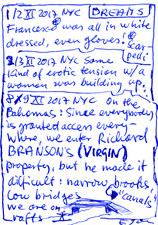 1/2 XI 2017 NYC DREAMS
Francesco was all in white
dressed, even gloves! & scar-
pedi
2/3 XI 2017 NYC Some
kind of erotic tension w/a
woman was building up.
8/9 XI 2017 NYC On the
Bahamas: Since everybody
is granted access every
where, we enter Richard
BRANSON'S (VIRGIN)
property, but he made it
difficult: narrow brooks,
low bridges canals!
we are on
rafts